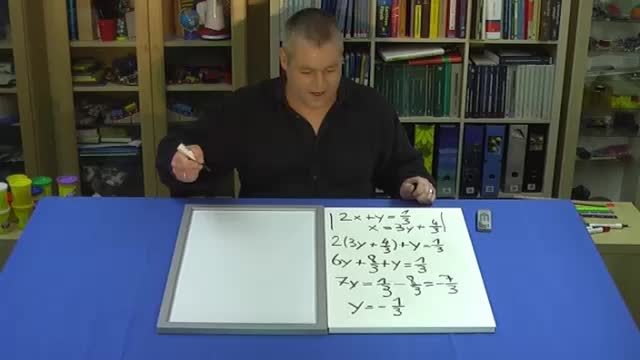 |2x+y=1/3
x=3y+4/3|
2(3y+4/3)+y=1/3
6y+8/3+y=1/3
7y=1/3-8/3=-7/3
y=-1/3